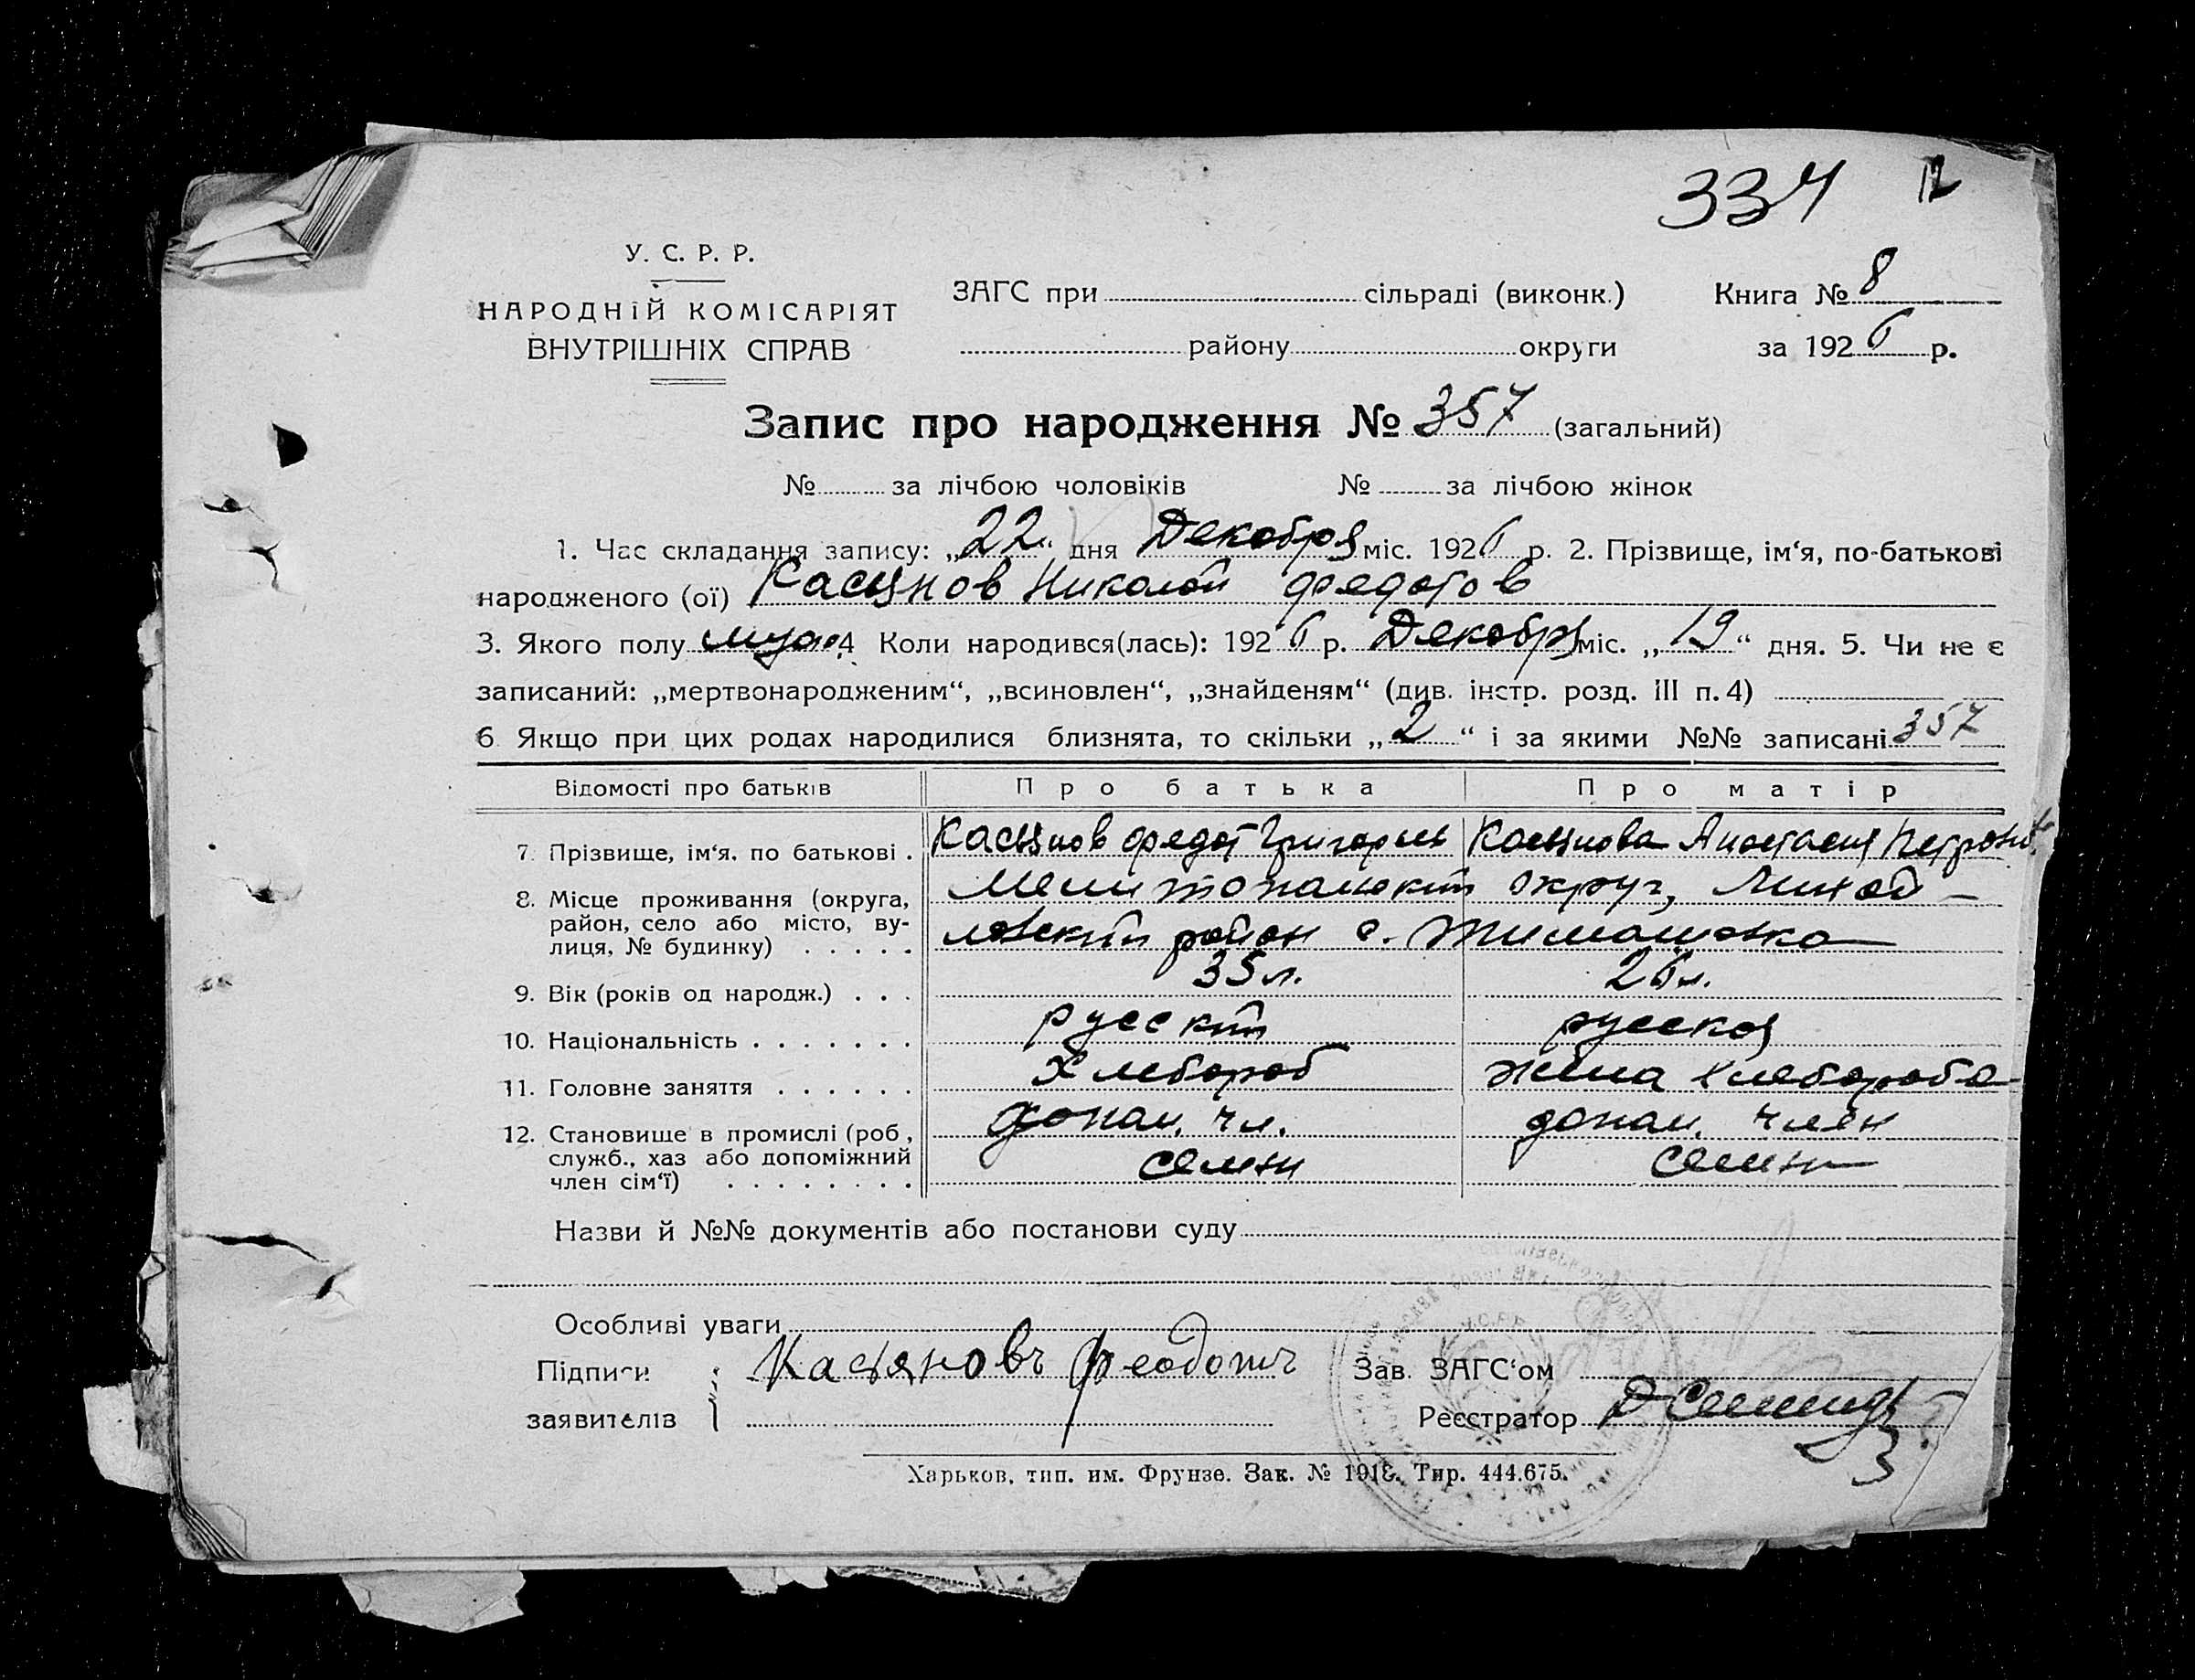 334 12
У. С. Р. Р.
НАРОДНІЙ КОМІСАРІЯТ
ВНУТРІШНІХ СПРАВ
ЗАГС при сільраді (виконк.) Книга № 8
району округи за 1926 р.
Запис про народження № 357 (загальний)
№ за лічбою чоловіків № за лічбою жінок
1. Час складання запису: „22“ дня Декабря міс. 1926 р. 2. Прізвище, ім‘я, по-батькові
народженого (ої) Касьянов Николай Федотов
3. Якого полу муж. 4 Коли народився(лась): 1926 р. Декабря міс. „19“ дня. 5. Чи не є
записаний: „мертвонародженим“, „всиновлен“, „знайденям“ (див. інстр. розд. III п. 4)
6 Якщо при цих родах народилися близнята, то скільки „2“ і за якими №№ записані 357
Відомості про батьків Про батька Про матір
7. Прізвище, ім‘я, по батькові . Касьянов Федот Григорьев Касьянова Анастасия Петровн.
8. Місце проживання (округа, Мелитопольский округ, Михай-
район, село або місто, ву- ловский район с. Тимашовка
лиця, № будинку) . . . . .
9. Вік (років од народж.) . . . 35 л. 26 л.
10. Національність . . . . . . . русский русская
11. Головне заняття . . . . . . Хлебороб жена хлебороба
12. Становище в промислі (роб., чл. член
служб., хаз або допоміжний семьи семьи
член сім‘ї) . . . . . . . .
Назви й №№ документів або постанови суду
Особливі уваги
Підписи Касьяновъ Феодотъ Зав. ЗАГС‘ом
заявителів Реєстратор
Харьков, тип. им. Фрунзе. Зак. № 1918. Тир. 444.675.